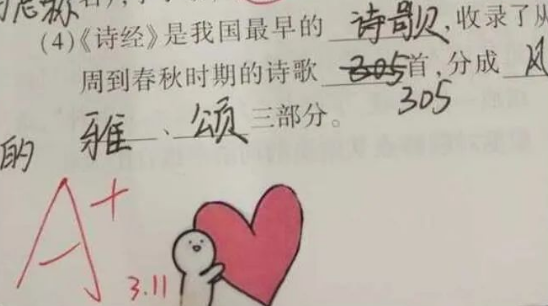 (4)《诗经》是我国最早的 诗歌,收录了从
周到春秋时期的诗歌 305首,分成 风
305
的 雅、颂三部分。
A+
3.11